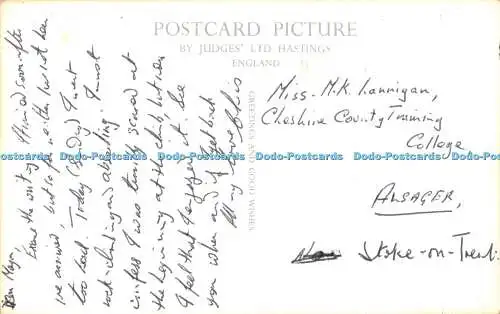 POSTCARD PICTURE
BY JUDGES' LTD HASTINGS
ENGLAND
GREETINGS AND GOOD WISHES
Excuse the writing. Arrived soon after
we arrived, but so far neither has been
too bad. Today (Sunday) I went
rock-climbing and abseiling. I must
confess I was terribly scared at
the beginning of the climb but now
I feel that I enjoyed it! See
you when and if I get back
All my love
Miss. M.K. Lannigan,
Cheshire County Training
College
ALSAGER,
Stoke-on-Trent.
Dodo-Postcards Dodo-Postcards Dodo-Postcards Dodo-Postcards Dodo-Postcards Dodo-Postcards